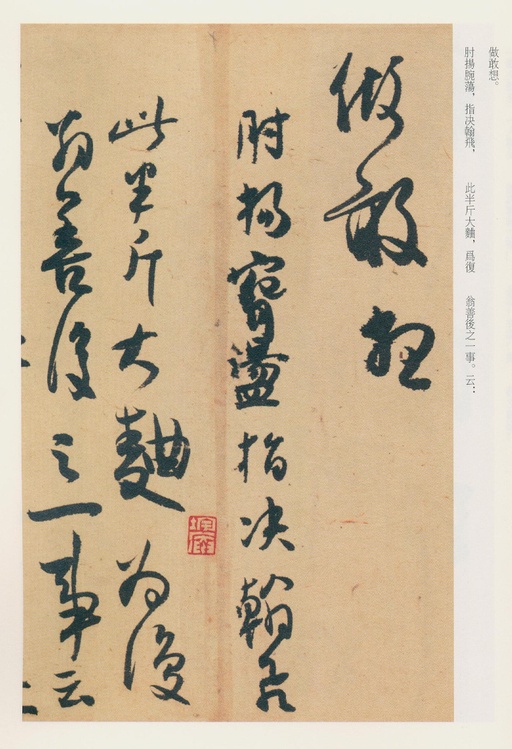 做敢想。
肘揚腕蕩，指决翰飛，　此半斤大麯，爲復　翁善後之一事。云：
做敢想
肘揚腕盪指决翰飛
此半斤大麯为復
翁善後之一事云